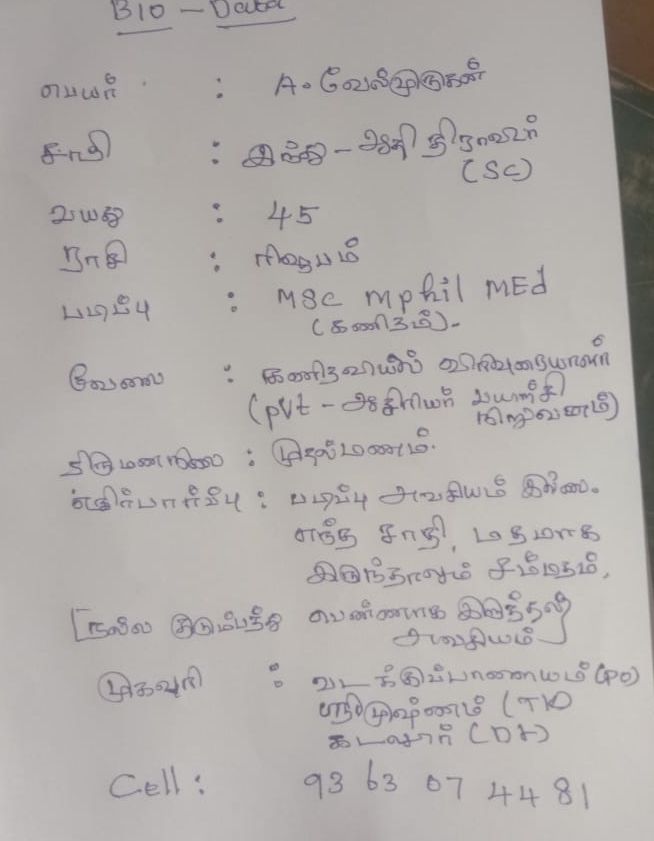 BIO - Data
பெயர் : A. வேல்முருகன்
சாதி : இந்து - ஆதி திராவிடர்
(SC)
வயது : 45
ராசி : ரிஷபம்
படிப்பு : MSC Mphil MEd
(கணிதம்).
வேலை : கணிதவியல் விரிவுரையாளர்
(pvt - ஆசிரியர் பயிற்சி
நிறுவனம்)
திருமணநிலை : முதல்மணம்.
எதிர்பார்ப்பு : படிப்பு அவசியம் இல்லை.
எந்த சாதி, மதமாக
இருந்தாலும் சம்மதம்.
[நல்ல குடும்பத்து பெண்ணாக இருத்தல்
அவசியம்]
முகவரி : வடக்குப்பாளையம் (PO)
ஸ்ரீமுஷ்ணம் (TK)
கடலூர் (Dt)
Cell : 93 63 07 44 81